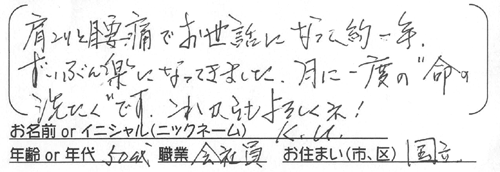 肩こりと腰痛でお世話になって約一年.
ずいぶん楽になってきました. 月に一度の"命の
洗たく"です. これからもよろしくネ!
お名前 or イニシャル(ニックネーム) K. U.
年齢 or 年代 50代 職業 会社員 お住まい(市、区) 国立.